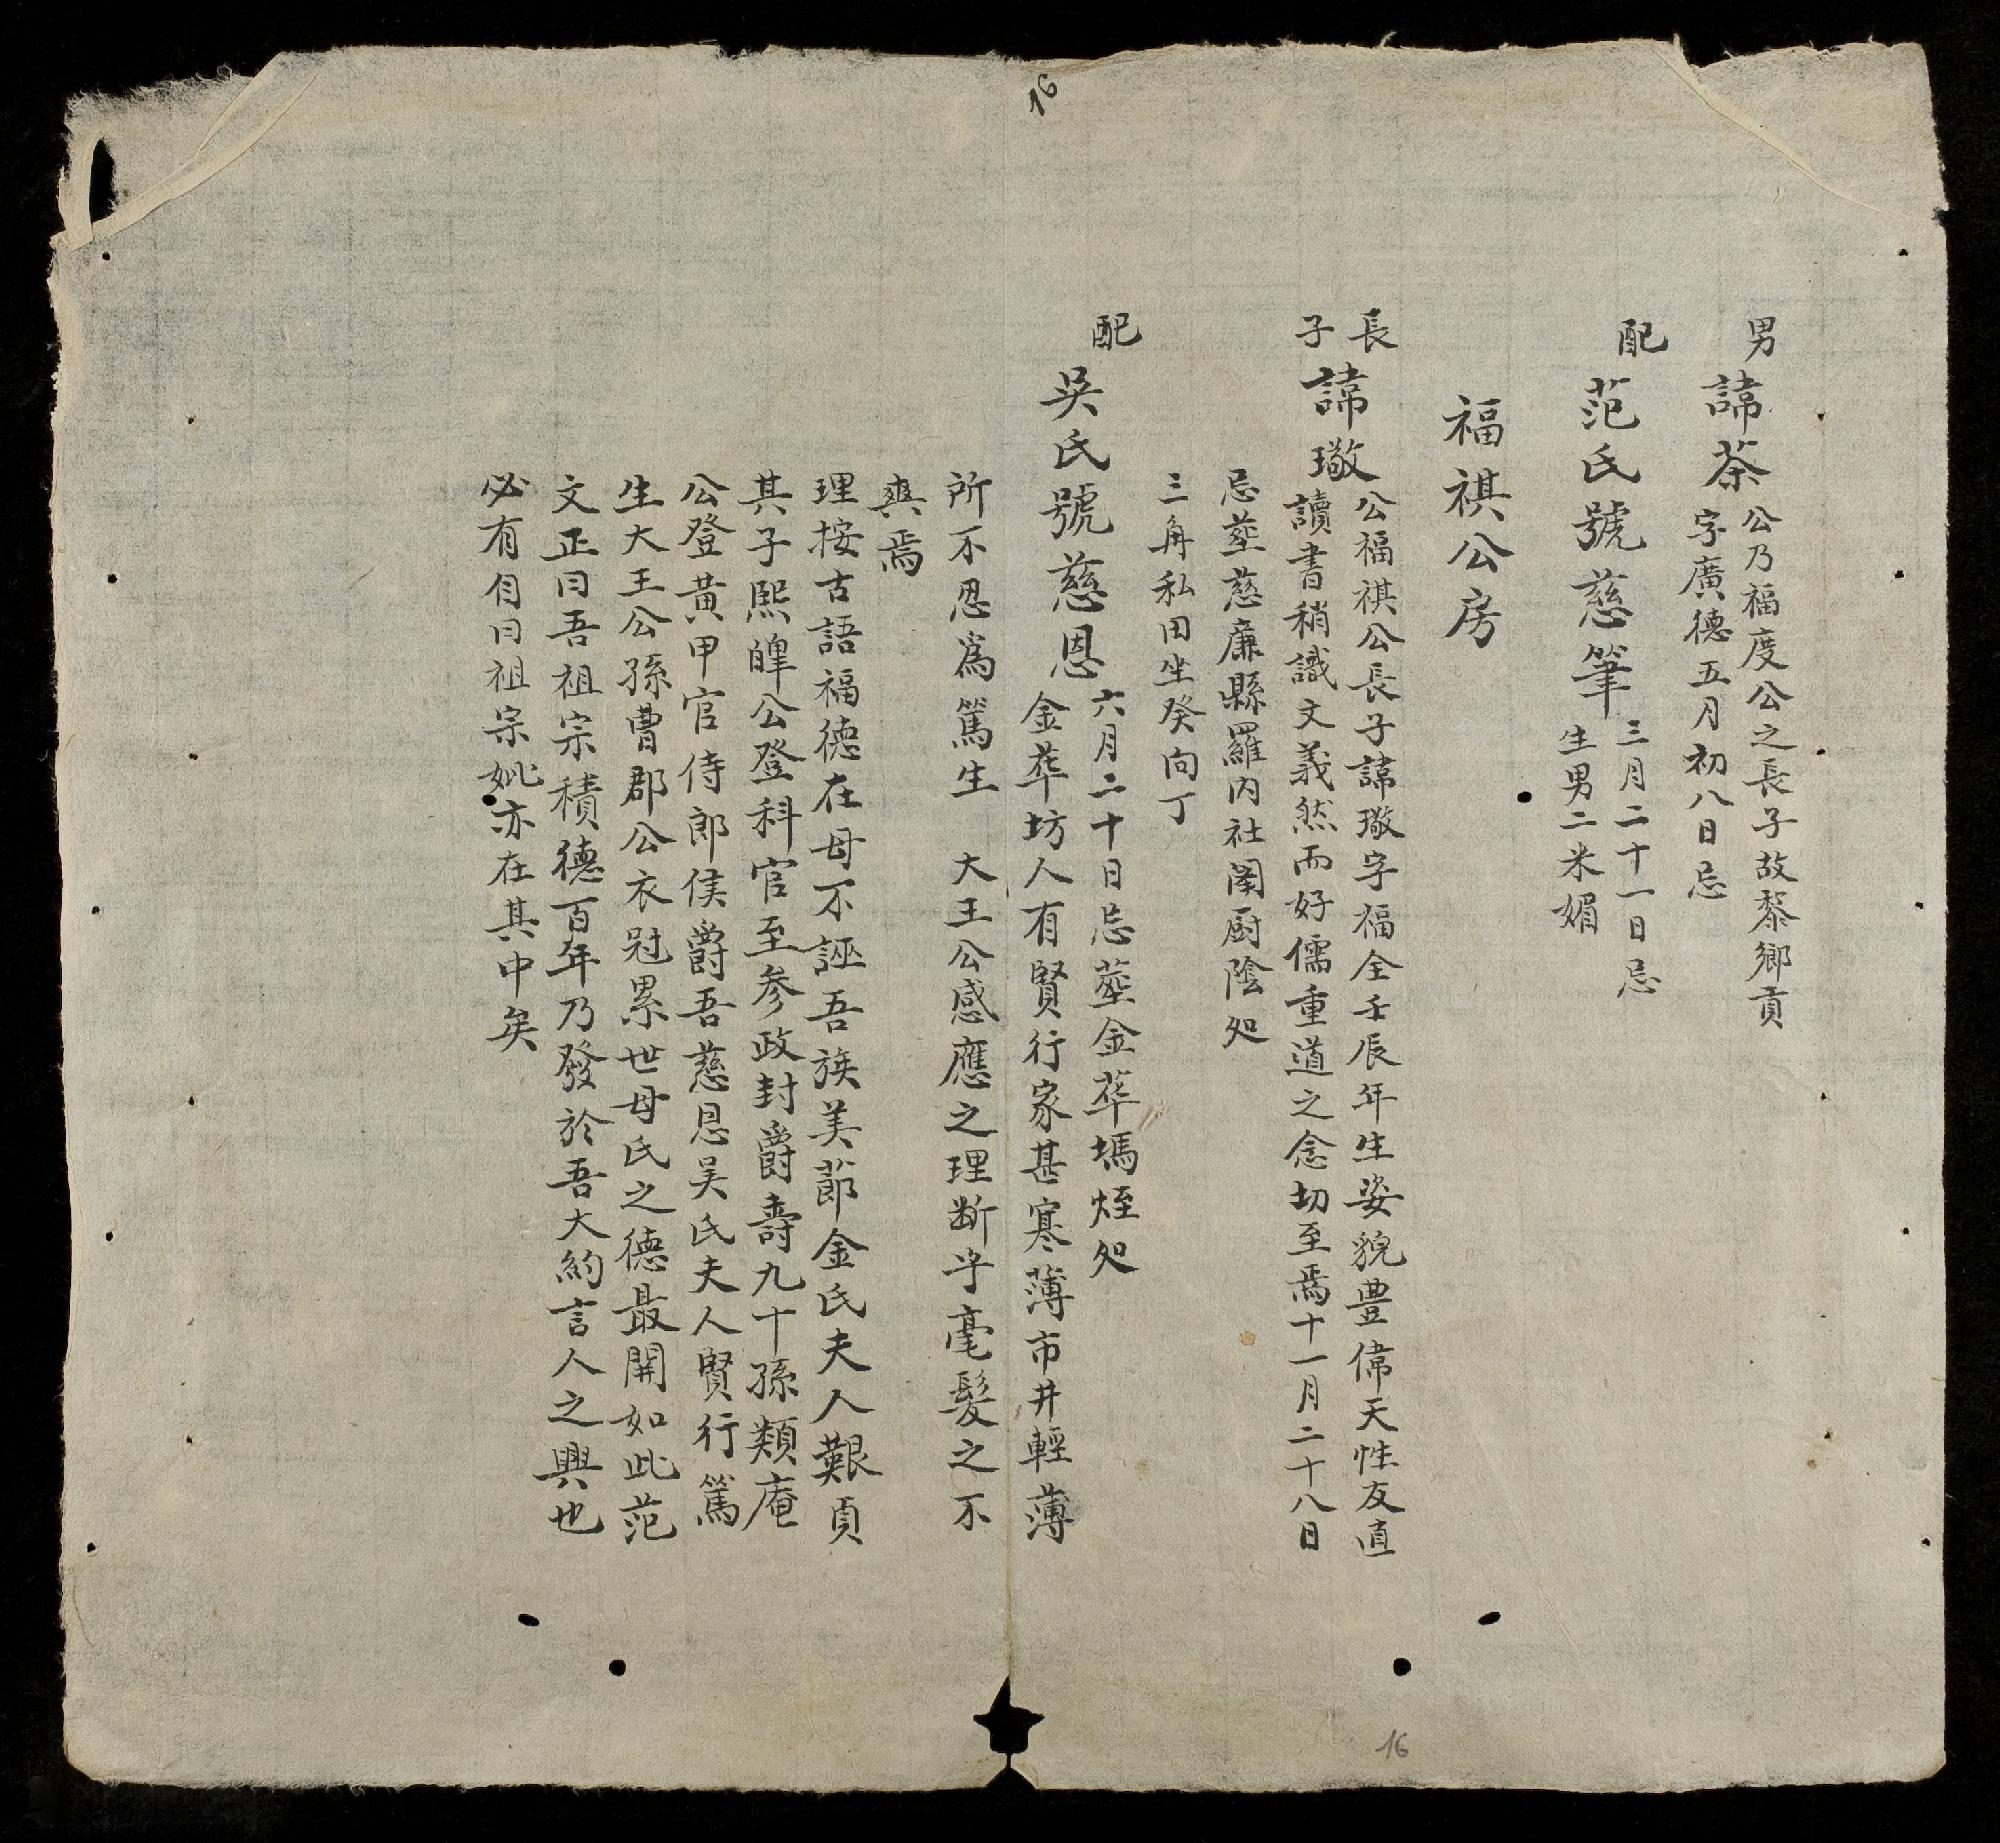 16
男
諱茶
公乃福度公之長子故黎鄉貢
字廣德五月初八日忌
配
范氏號慈筆
三月二十一日忌
生男二米媚
福祺公房
長子
諱璥
公福祺公長子諱璥字福全壬辰年生姿貌豊偉天性友直
讀書稍識文義然而好儒重道之念切至焉十一月二十八日
忌塟慈廉縣羅內社阁厨陰処
三角私田坐癸向丁
配
吳氏號慈恩
六月二十日忌塟金葬塢垤処
金葬坊人有賢行家甚寒薄市井輕薄
所不忍爲篤生 大王公感應之理断乎毫髮之不
爽焉
理按古語福德在母不誣吾族美莭金氏夫人艱貞
其子熙皡公登科官至参政封爵壽九十孫類庵
公登黃甲官侍郎侯爵吾慈恩吴氏夫人賢行篤
生大王公孫曹郡公衣冠累世母氏之德最開如此范
文正曰吾祖宗積德百年乃發於吾大約言人之興也
必有自曰祖宗姚亦在其中矣
16